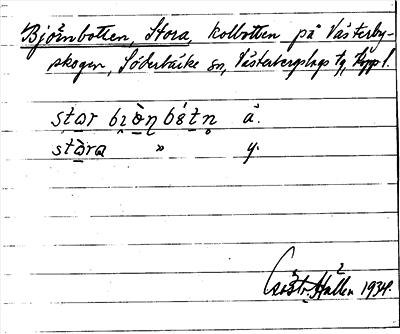 Björnbotten, Stora, kolbotten på Västerby-
skogen, Söderbärke sn, Västerbergslags tg, Kppl.
star bɩɷ̀ɳ bótn̥ ä.
stɷra " y.
Hallén 1934.